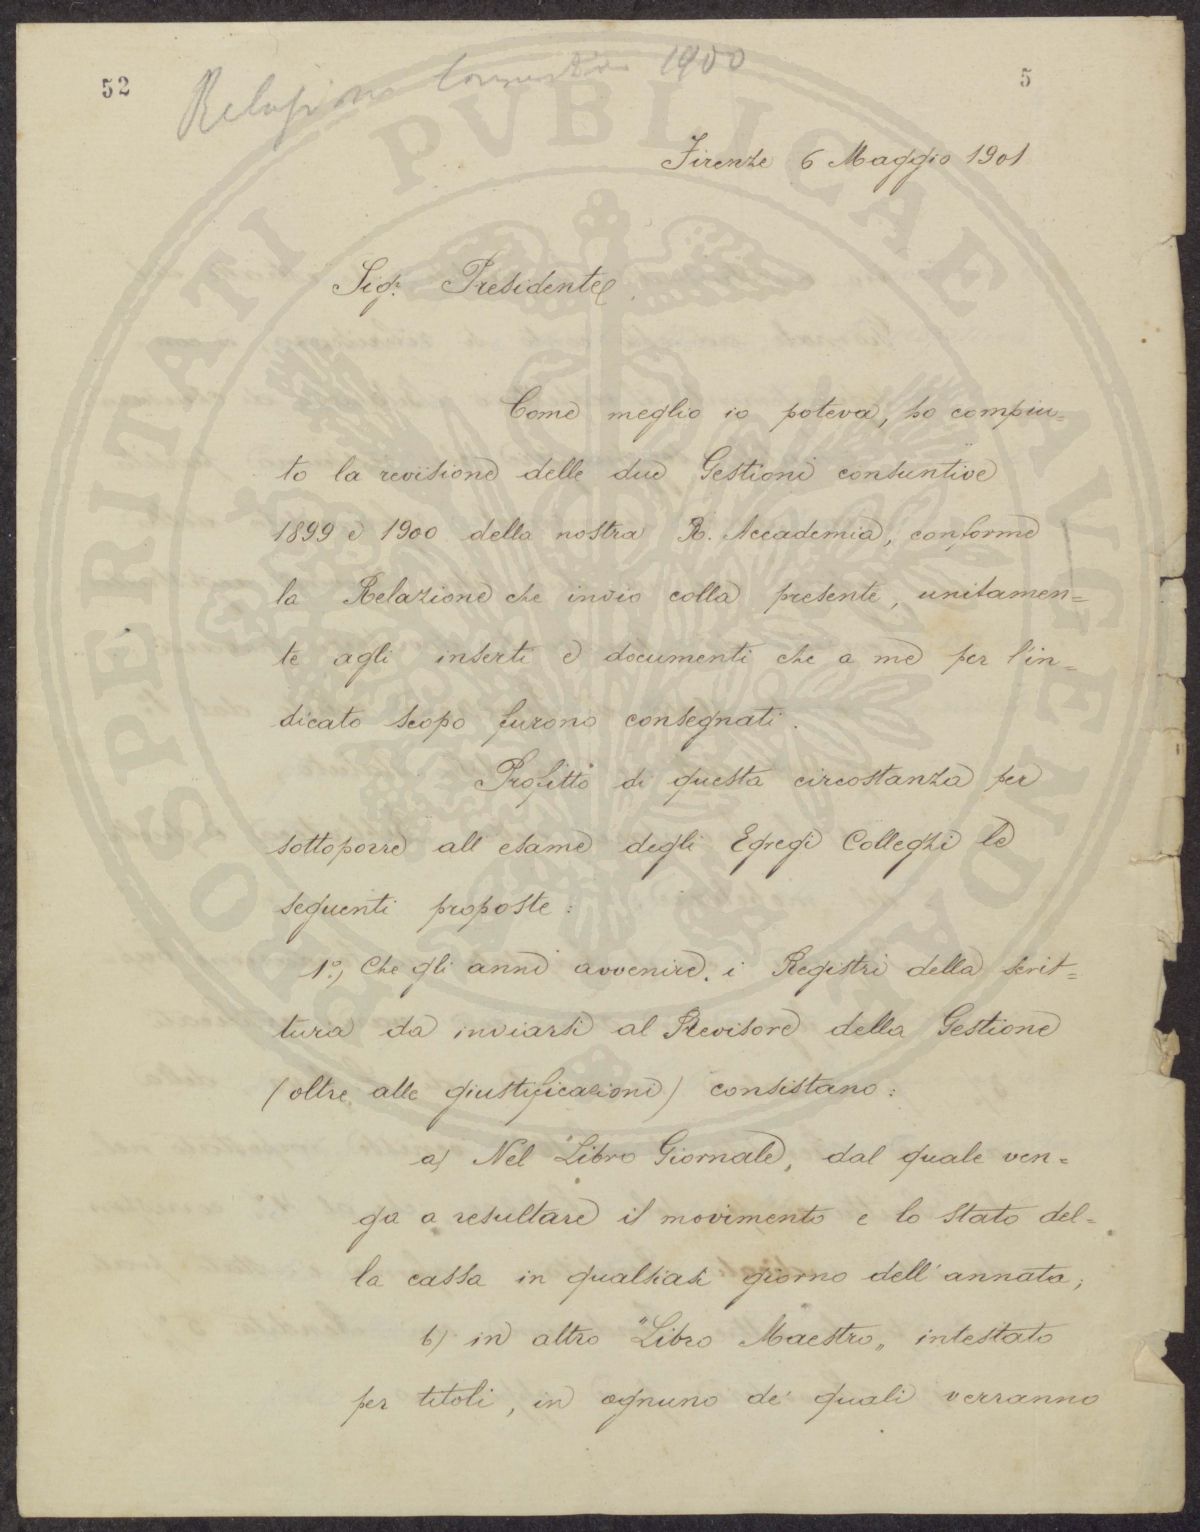 52
5
Relazione Consuntivo 1900
Firenze 6 Maggio 1901
Sigr. Presidente
Come meglio io poteva, ho compiu=
to la revisione delle due Gestioni consuntive
1899 e 1900 della nostra R. Accademia, conforme
la Relazione che invio colla presente, unitamen=
te agli inserti e documenti che a me per l'in=
dicato scopo furono consegnati.
Profitto di questa circostanza per
sottoporre all esame degli Egregi Colleghi le
seguenti proposte:
1º) Che gli anni avvenire, i Registri della scrit=
tura da inviarsi al Revisore della Gestione
(oltre alle giustificazioni) consistano:
a) Nel "Libro Giornale, dal quale ven=
ga a resultare il movimento e lo stato del=
la cassa in qualsiasi giorno dell'annata;
b) in altro "Libro Maestro„ intestato
per titoli, in ognuno de' quali verranno
PROSPERITATI PVBLICAE AVGENDAE